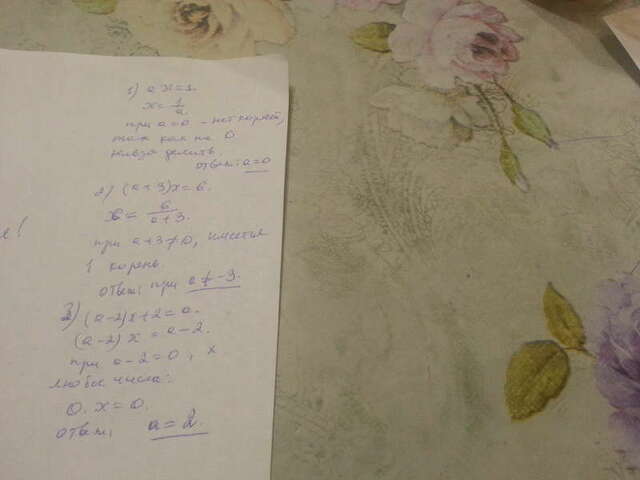 1) ax=1.
x=1/a.
при a=0 - нет корней,
так как на 0
нельзя делить.
ответ: a=0
2) (a+3)x=6.
x=6/a+3.
при a+3≠0, имеется
1 корень.
ответ: при a≠-3.
3) (a-2)x+2=a.
(a-2)x=a-2.
при a-2=0, x
любое число:
0.x=0.
ответ: a=2.